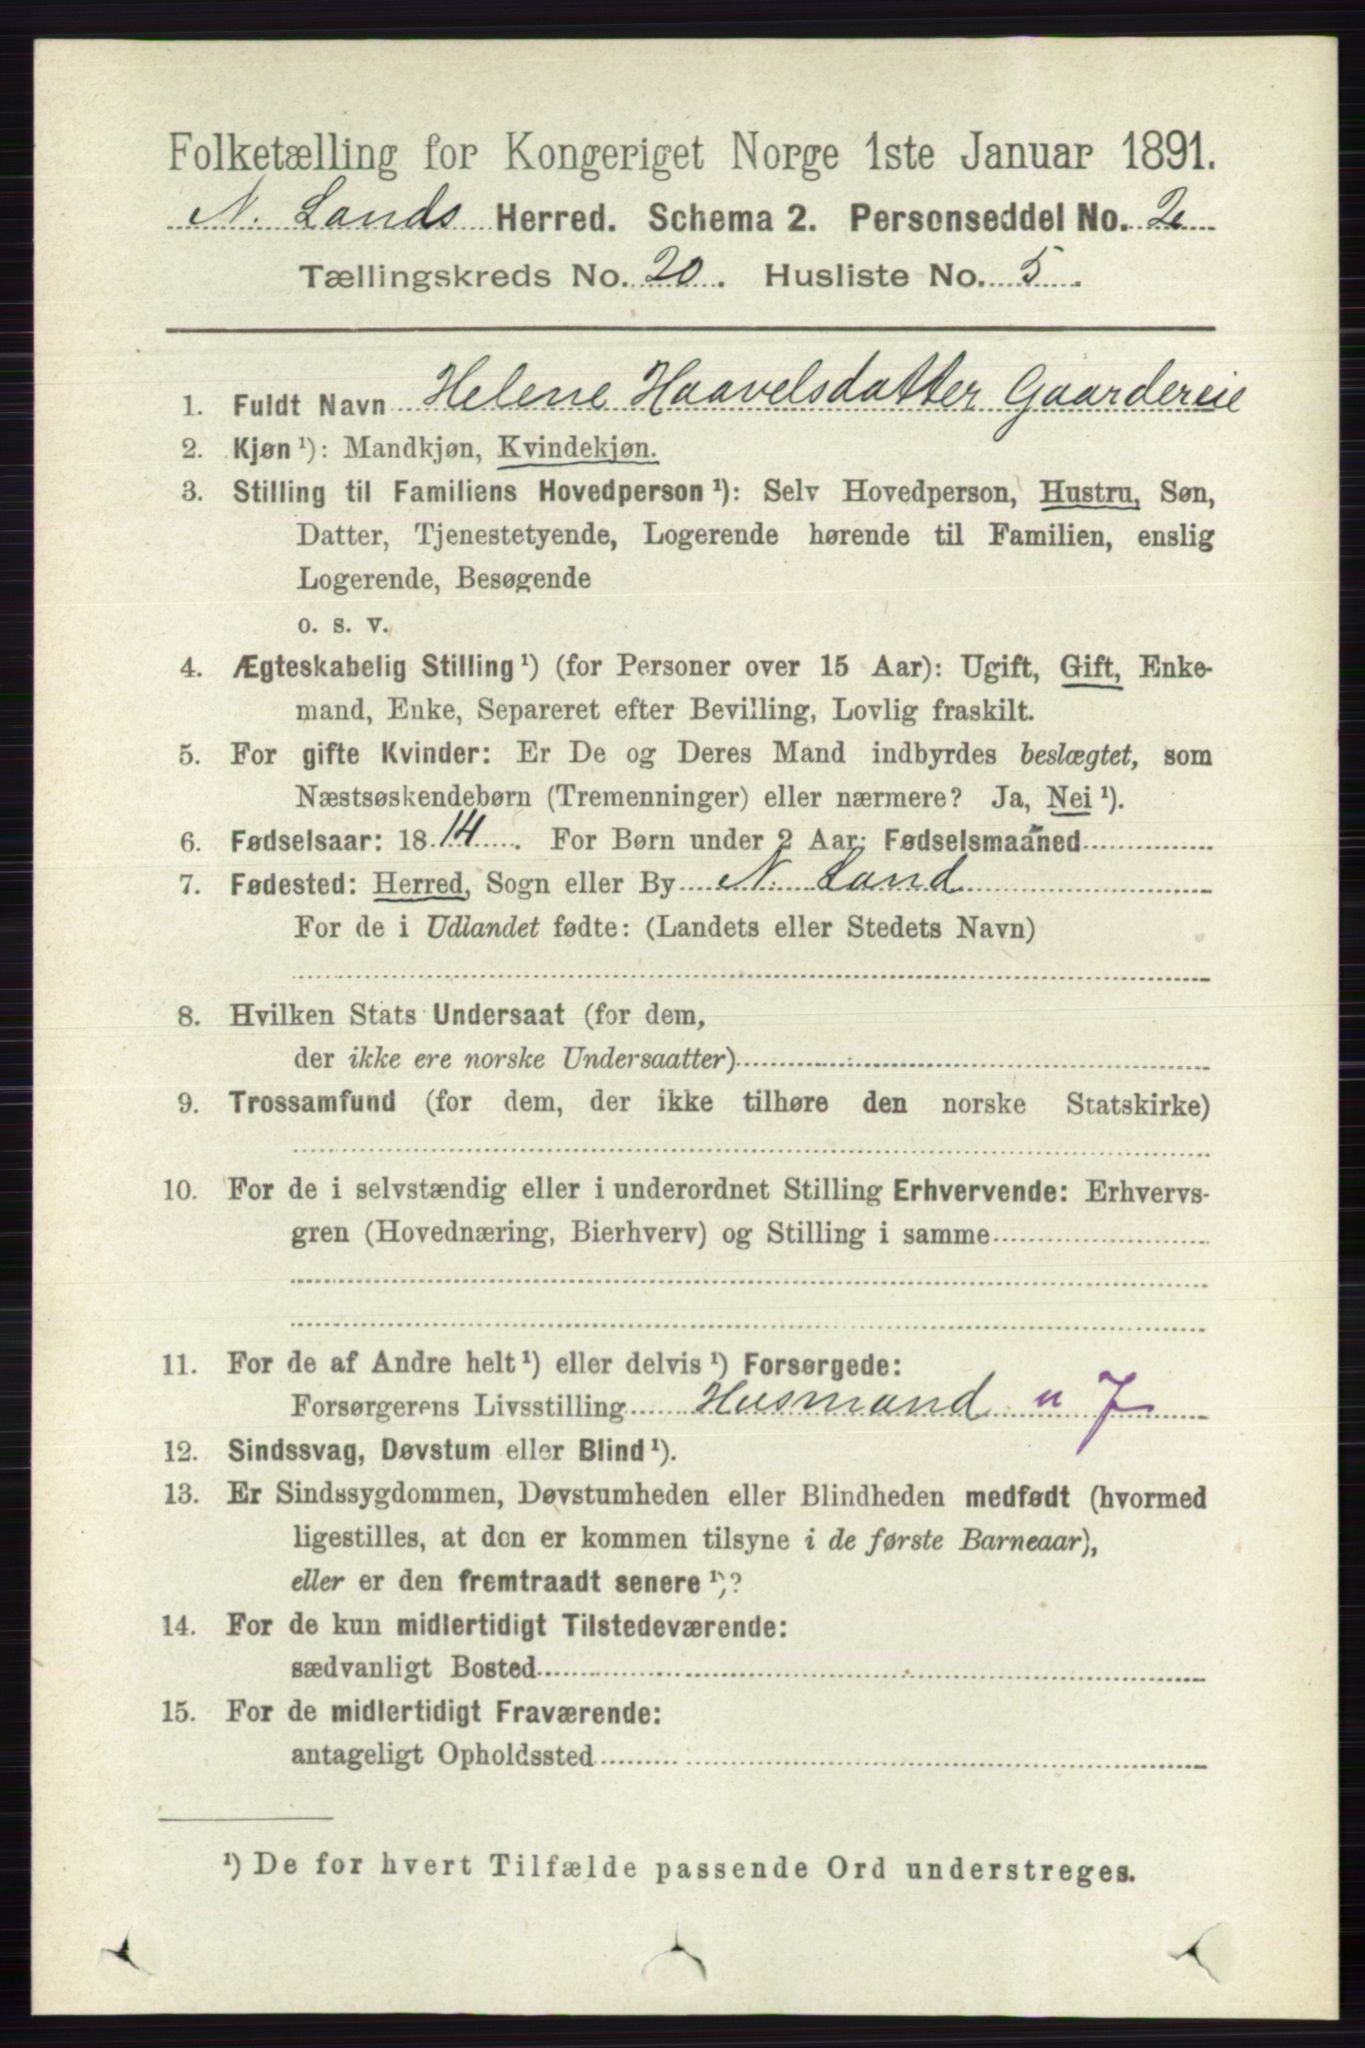 Folketælling for Kongeriget Norge 1ste Januar 1891.
N. Lands Herred. Schema 2. Personseddel No. 2
Tællingskreds No. 20. Husliste No. 5.
1. Fuldt Navn Helene Haavelsdatter Gaardereie
2. Kjøn ¹): Mandkjøn, Kvindekjøn.
3. Stilling til Familiens Hovedperson ¹): Selv Hovedperson, Hustru, Søn,
Datter, Tjenestetyende, Logerende hørende til Familien, enslig
Logerende, Besøgende
o. s. v.
4. Ægteskabelig Stilling ¹) (for Personer over 15 Aar): Ugift, Gift, Enke-
mand, Enke, Separeret efter Bevilling, Lovlig fraskilt.
5. For gifte Kvinder: Er De og Deres Mand indbyrdes beslægtet, som
Næstsøskendebørn (Tremenninger) eller nærmere? Ja, Nei ¹).
6. Fødselsaar: 1814. For Børn under 2 Aar: Fødselsmaaned
7. Fødested: Herred, Sogn eller By N. Land
For de i Udlandet fødte: (Landets eller Stedets Navn)
8. Hvilken Stats Undersaat (for dem,
der ikke ere norske Undersaatter)
9. Trossamfund (for dem, der ikke tilhøre den norske Statskirke)
10. For de i selvstændig eller i underordnet Stilling Erhvervende: Erhvervs-
gren (Hovednæring, Bierhverv) og Stilling i samme
11. For de af Andre helt ¹) eller delvis ¹) Forsørgede:
Forsørgerens Livsstilling Husmand u J
12. Sindssvag, Døvstum eller Blind ¹).
13. Er Sindssygdommen, Døvstumheden eller Blindheden medfødt (hvormed
ligestilles, at den er kommen tilsyne i de første Barneaar),
eller er den fremtraadt senere ¹)?
14. For de kun midlertidigt Tilstedeværende:
sædvanligt Bosted
15. For de midlertidigt Fraværende:
antageligt Opholdssted
¹) De for hvert Tilfælde passende Ord understreges.